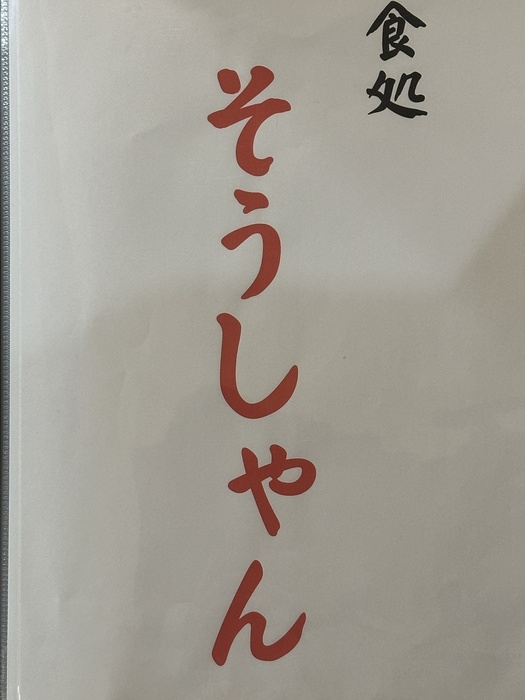 食処
そうしゃん